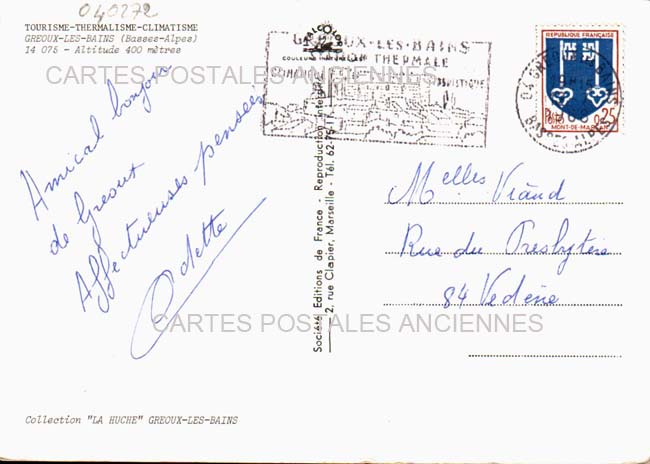 040272
TOURISME-THERMALISME-CLIMATISME
GREOUX-LES-BAINS (Basses-Alpes)
14 076 - Altitude 400 mètres
CARTES POSTALES ANCIENNES
Amical bonjour
de Greoux
Affectueuses pensées
Odette
GREOUX-LES-BAINS
THERMALE
REPUBLIQUE FRANÇAISE
0,25
MONT-DE-MARSAN
Société Editions de France - Reproduction
2, rue Clapier, Marseille - Tél. 62-75-11
Melles Viand
Rue du Presbytère
84 Vedène
CARTES POSTALES ANCIENNES
Collection "LA HUCHE" GREOUX-LES-BAINS